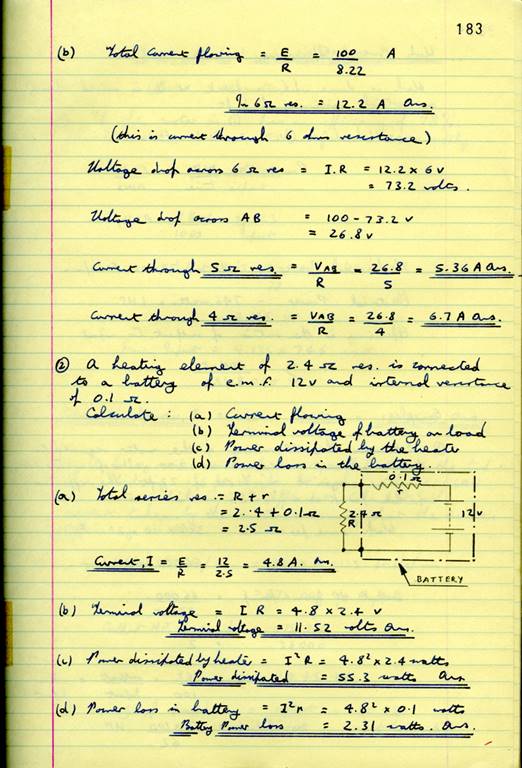 183
(b) Total Current flowing = E/R = 100/8.22 A
In 6Ω res. = 12.2 A Ans.
(this is current through 6 ohms resistance)
Voltage drop across 6 Ω res = I.R = 12.2 x 6 v
= 73.2 volts.
Voltage drop across AB = 100 - 73.2 v
= 26.8 v
Current through 5 Ω res. = VAB/R = 26.8/5 = 5.36 A Ans.
Current through 4 Ω res. = VAB/R = 26.8/4 = 6.7 A Ans.
② A heating element of 2.4 Ω res. is connected
to a battery of e.m.f. 12v and internal resistance
of 0.1 Ω.
Calculate: (a) Current flowing
(b) Terminal voltage of battery on load
(c) Power dissipated by the heater
(d) Power loss in the battery.
(a) Total series res = R + r
= 2.4 + 0.1 Ω
= 2.5 Ω
Current, I = E/R = 12/2.5 = 4.8 A. Ans.
0.1 Ω
r
2.4 Ω
R
12v
BATTERY
(b) Terminal voltage = I R = 4.8 x 2.4 v
Terminal voltage = 11.52 volts Ans.
(c) Power dissipated by heater = I²R = 4.8² x 2.4 watts
Power dissipated = 55.3 watts Ans
(d) Power loss in battery = I²r = 4.8² x 0.1 watts
Battery Power loss = 2.31 watts. Ans.